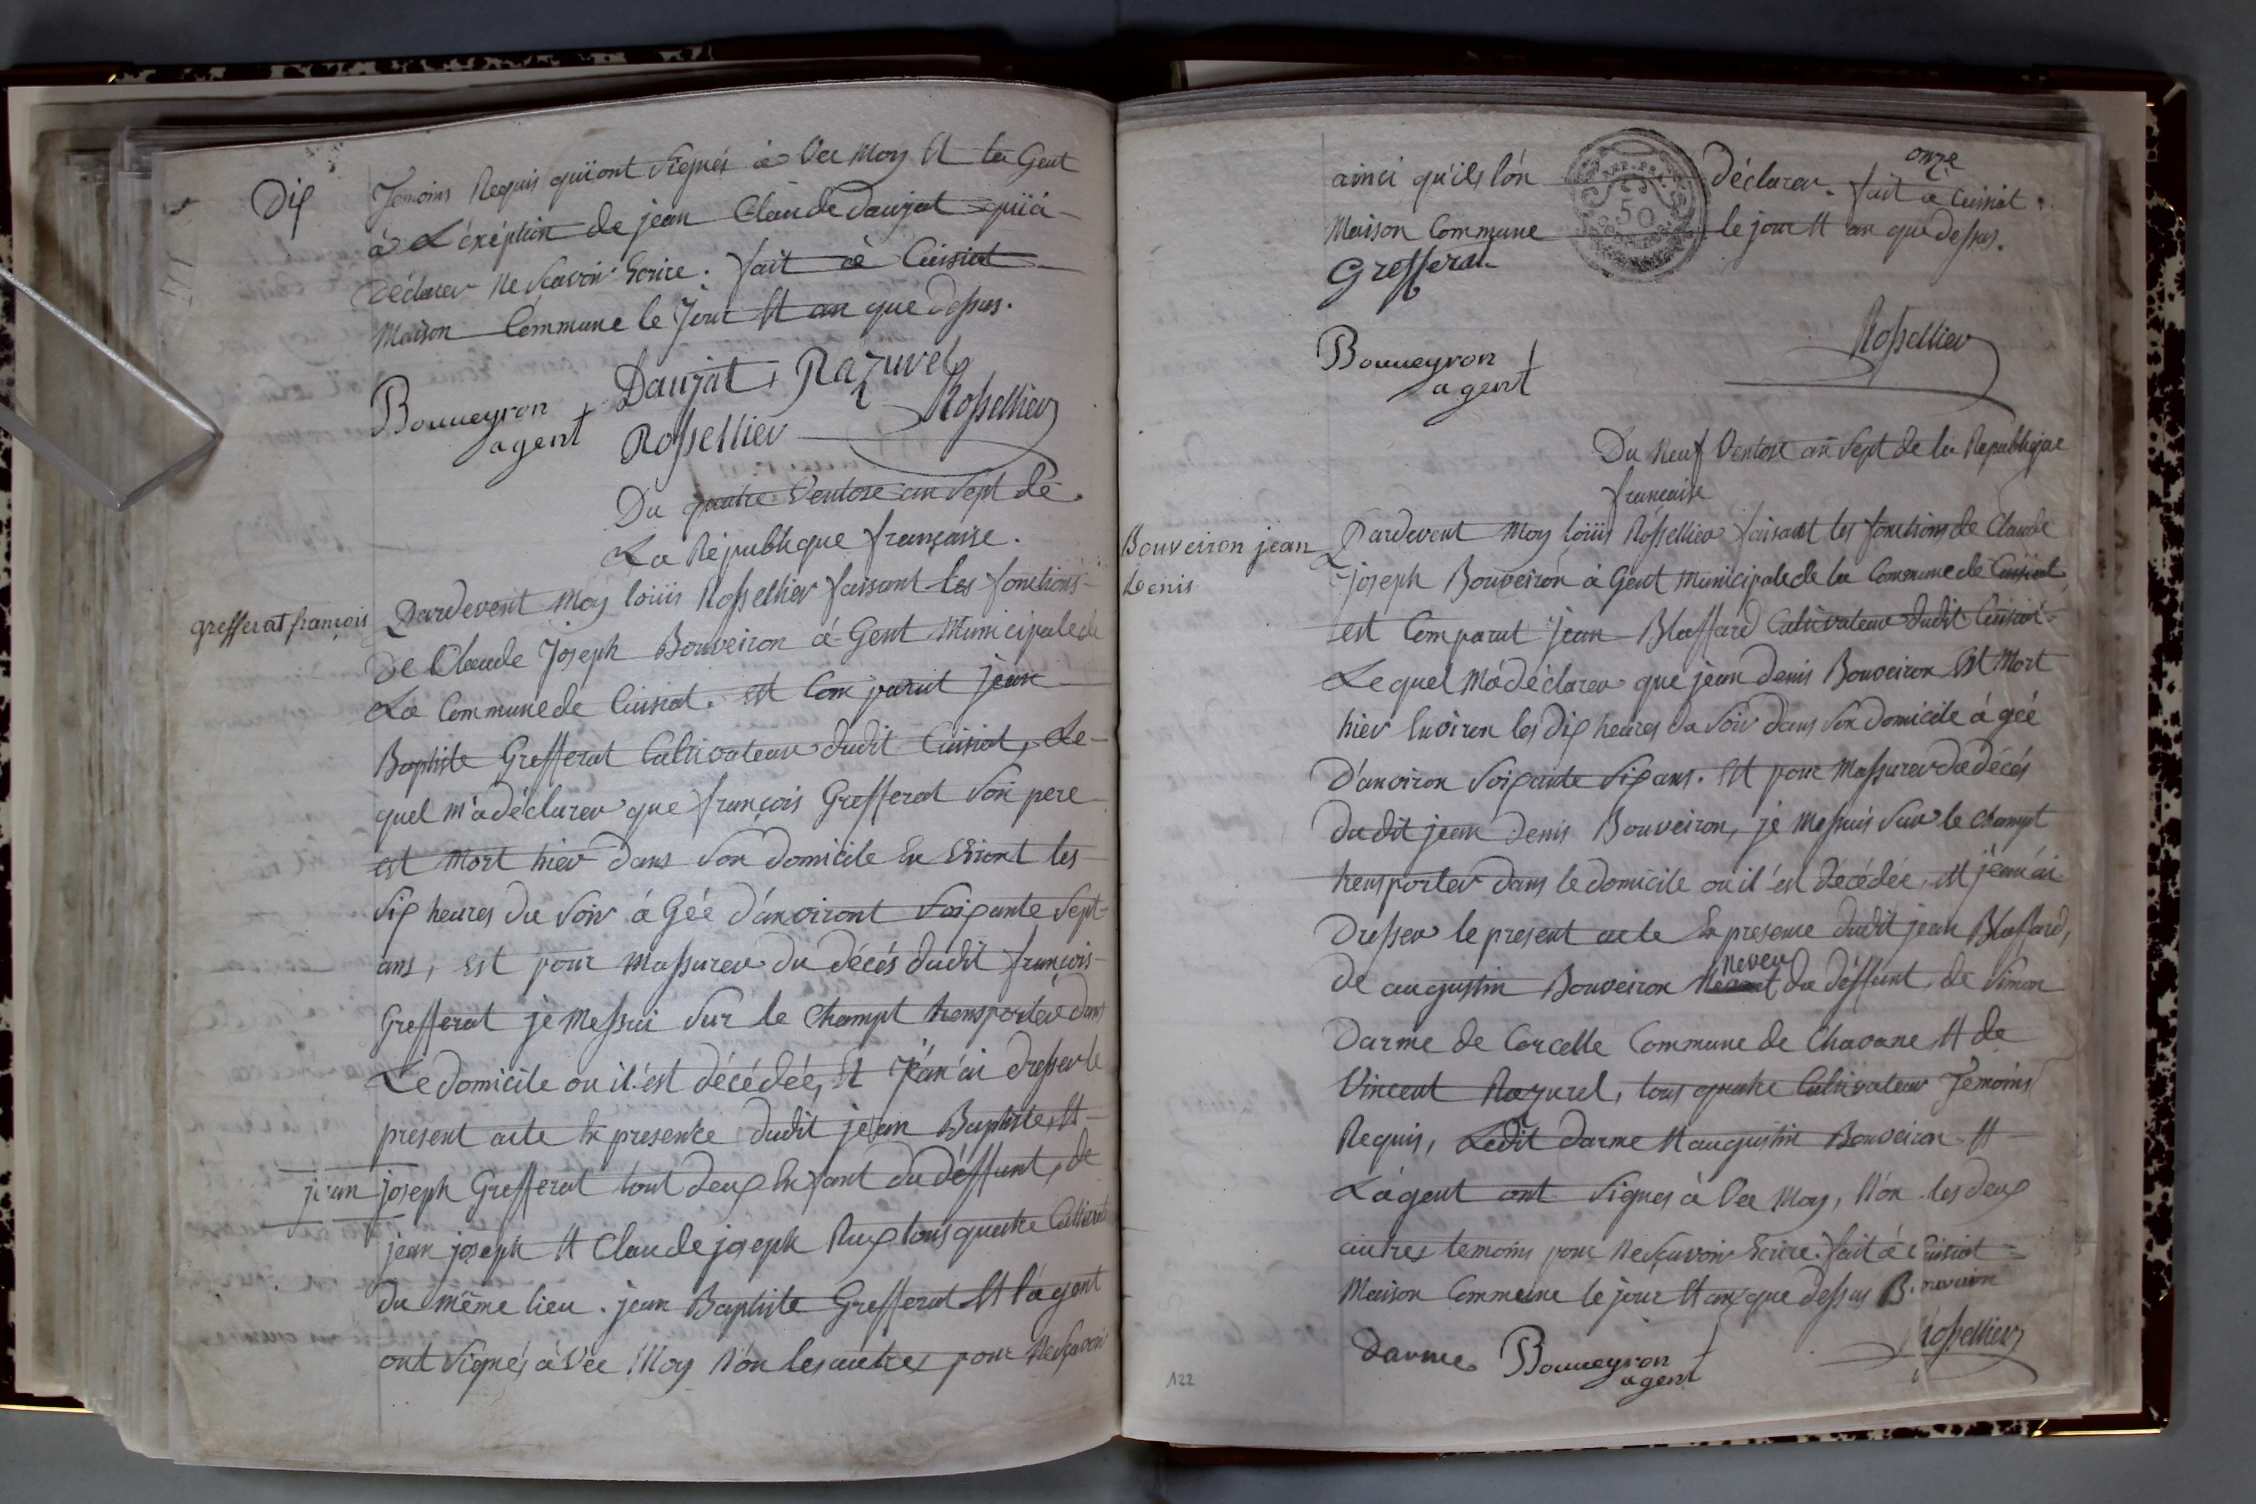 Dix
Temoins Requis qui ont signés à Vec Moy Et la Gent
à L'éxéption de jean Claude daujat qui à
déclarer Ne scavoir Ecrire. fait à Cuisiat
Maison Commune le Jour Et an que dessus.
Daujat, Razurel
Bouueyron agent
Rossellier
Rossellier
Du quatre Ventose an sept de
La République française.
grefferat françois
Pardevent Moy loüis Rossellier faisant les fonctions
De Claude Joseph Bouveiron à Gent Municipale de
La Commune de Cuisiat. est Com parut jean
Baptiste Grefferat Cultivateur dudit Cuisiat, Le
quel m'a déclarer que françois Grefferat son pere
est Mort hier dans son domicile En Viront les
six heures du soir à Géé d'anviront soixante sept
ans, Est pour Massurer du décés dudit françois
Grefferat je Messui sur le Champt transporter dans
Le domicile ou il est décédée, Et J'an'ai dresser le
present acte En presence dudit jean Baptiste, Et
jean joseph Grefferat tout deux Enfant du déffunt, de
jean joseph Et Claude joseph Rux tous quatre
du même lieu. jean Baptiste Grefferat Et l'agent
ont signés à Vec Moy N'on les autres pour Ne scavoir
ainci qu'ils l'on déclarer. fait a Cuisiat
onze
Maison Commune le jour Et an que dessus.
50
Grefferat
Rossellier
Bouueyron
agent
Du Neuf Ventose an sept de la Republique
française
Bouveiron jean
denis
Pardevent Moy loüis Rossellier faisant les fonctions de Claude
joseph Bouveiron à Gent Municipale de la Commune de Cuisiat
est Comparut jean Blaffard Cultivateur dudit Cuisiat
Le quel M'a déclarer que jean denis Bouveiron Est Mort
hier Environ les dix heures du soir dans son domicile à géé
D'anviron soixante six ans. Et pour Massurer du décés
dudit jean denis Bouveiron, je Messuis sur le champt
transporter dans le domicile ou il est décédée, Et j'ean'ai
Dresser le present acte En presence dudit jean Blaffard,
de augustin Bouveiron neveu du déffunt, de simon
Darme de Corcelle Commune de Chavane Et de
Vincent Razurel, tous quatre Cultivateur Temoins
Requis, Ledit darme Et augustin Bouveiron Et
L'agent ont signes à Vec Moy, N'on les deux
autres temoins pour Ne scavoir Ecrire. fait à Cuisiat
Maison Commune le jour Et an que dessus B. ouveiron
darme Bouueyron
agent
Rossellier
122